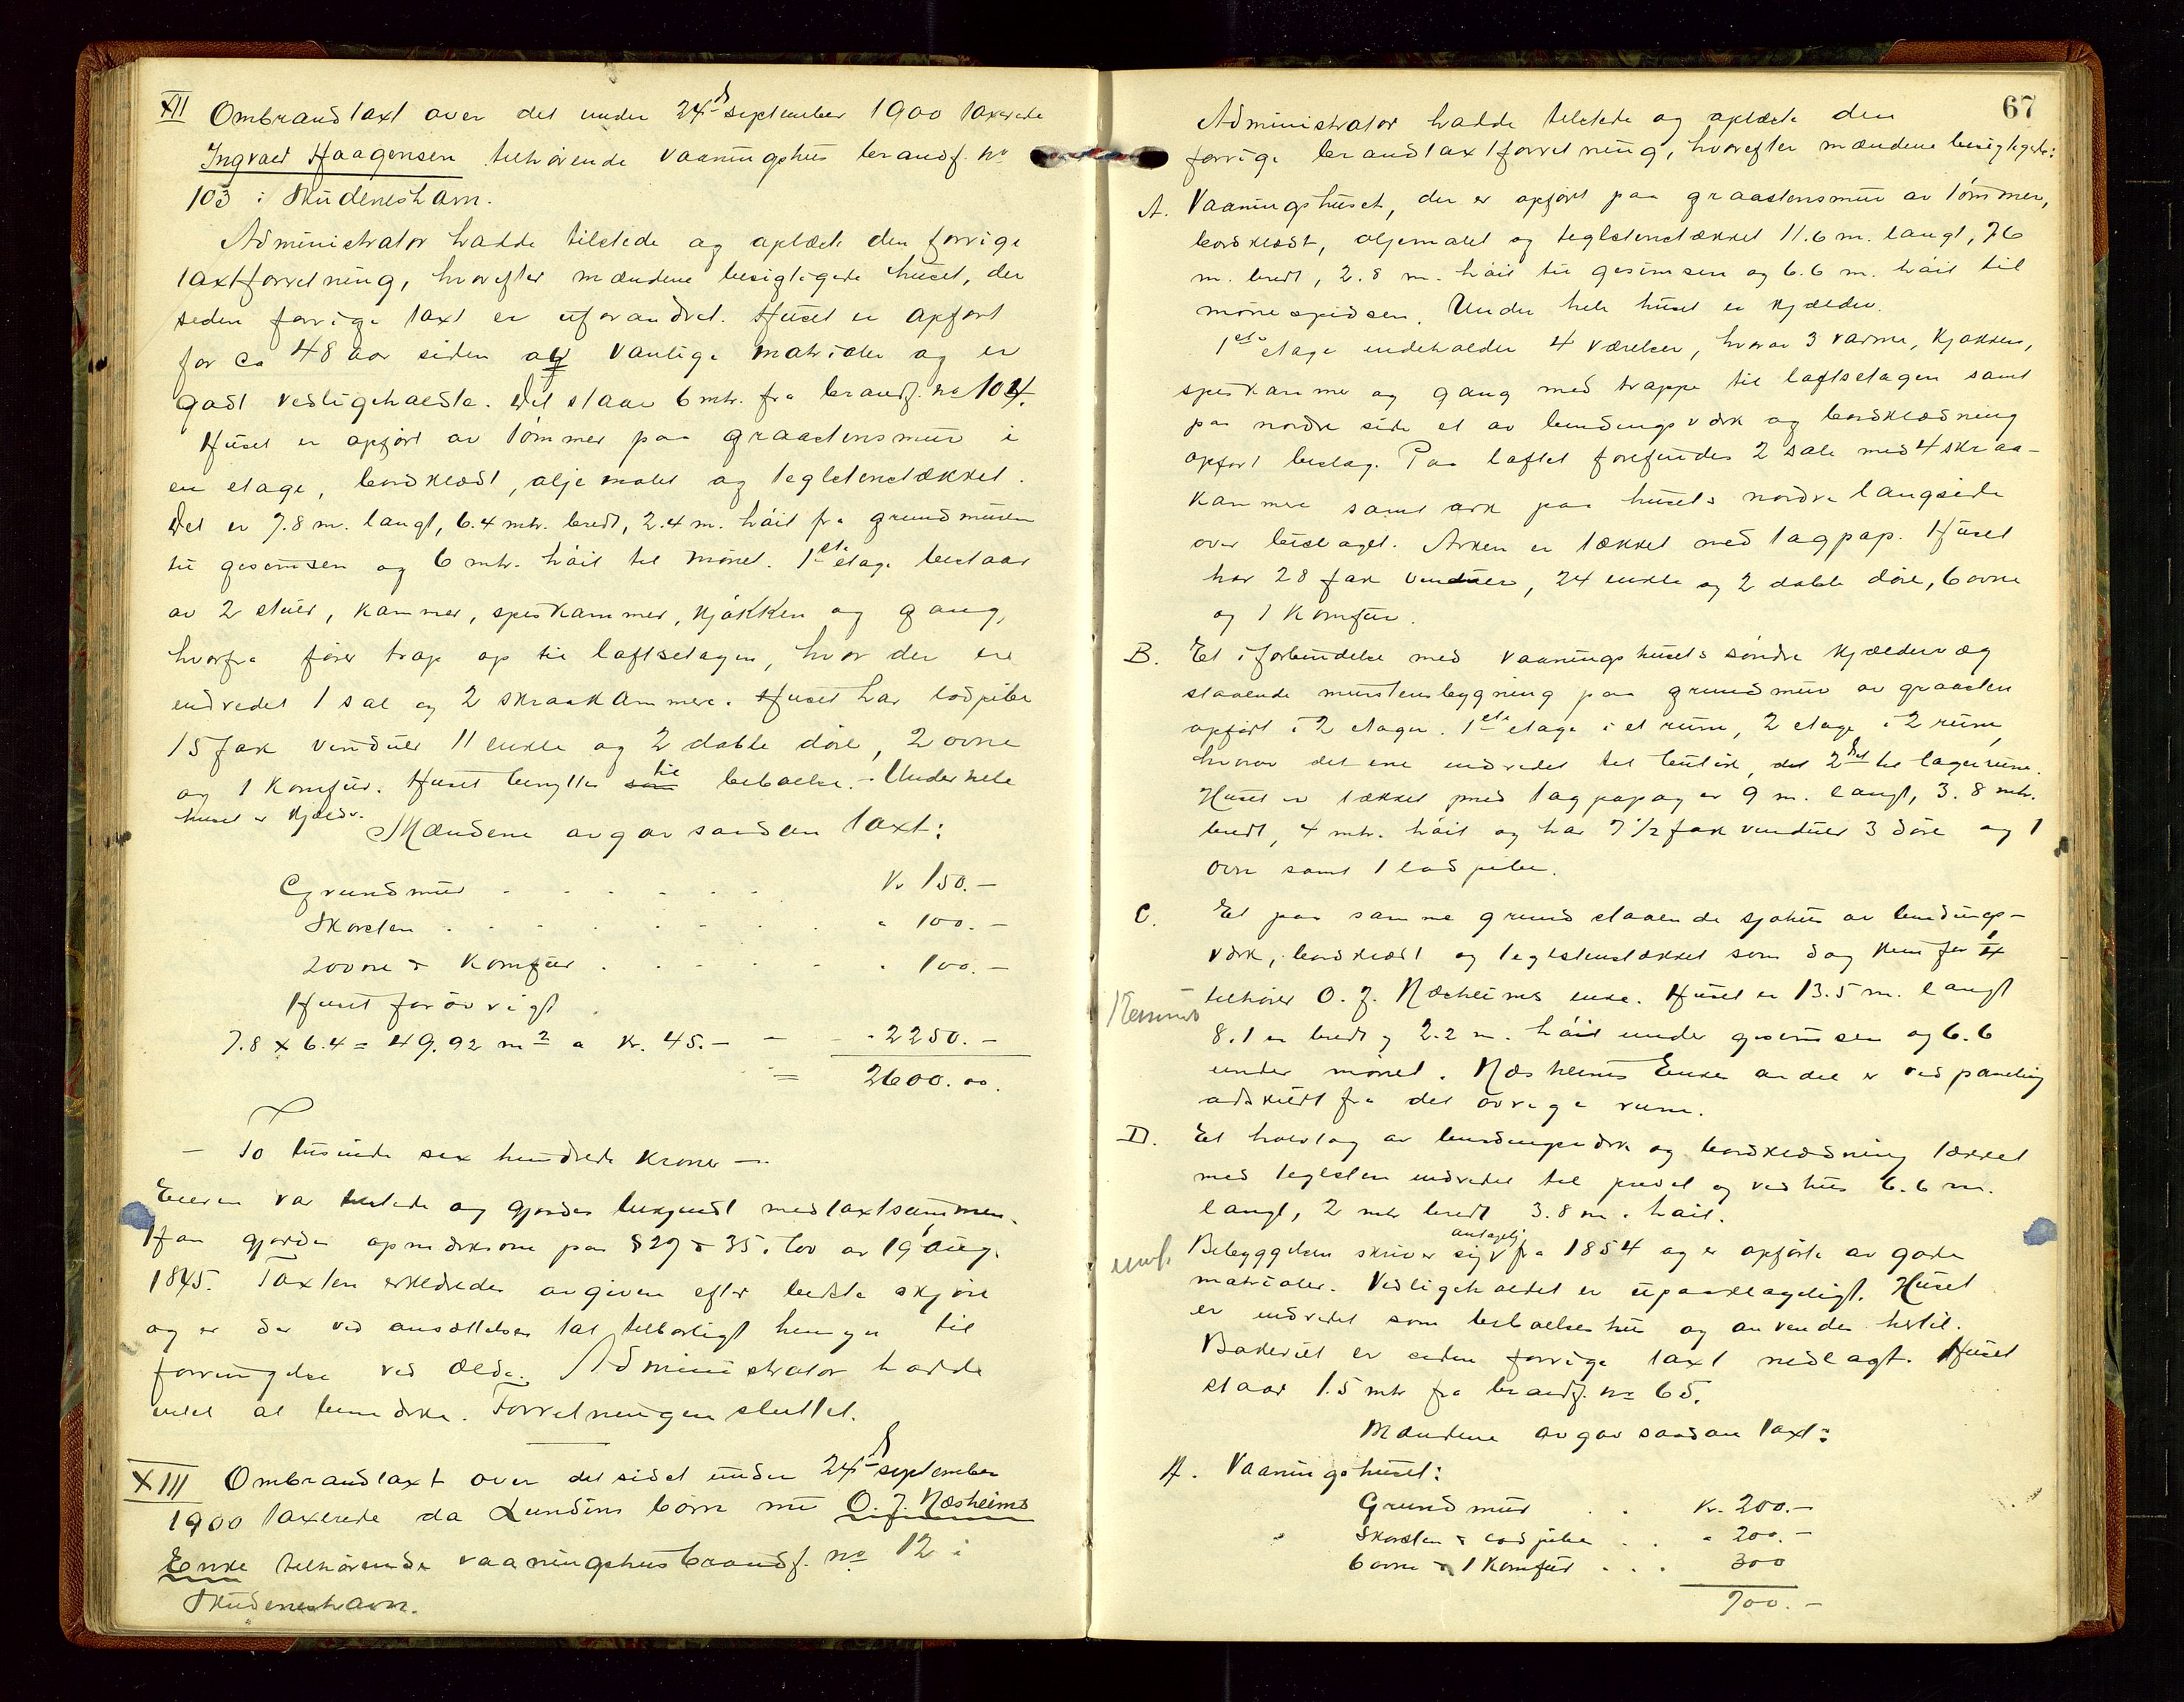 XII Ombrandtaxt over det under 24de september 1900 taxerede
Ingvald Haagensen tilhørende vaaningshus brandf. no
103 i Skudeneshavn.
Administrator hadde tilstede og oplæste den forrige
taxtforretning, hvorefter mændene besigtigede huset, der
siden forrige taxt er uforandret. Huset er opført
for ca 48 aar siden av vanlige matrialer og er
godt vedligeholdte. Det staar 6 mtr. fra brandf. no 104.
Huset er opført av tømmer paa graastensmur i
en etage, bordklædt, oljemalet og teglstenstækket.
Det er 7.8 m. langt, 6.4 mtr. bredt, 2.4 m. høit fra grundmuren
til gesimsen og 6 mtr. høit til mønet. 1ste etage bestaar
av 2 stuer, kammer, speskammer, kjøkken og gang,
hvorfra fører trap op til loftsetagen, hvor der er
indredet 1 sal og 2 skraakammere. Huset har lodpibe
15 fak vinduer 11 enkle og 2 doble døre, 2 ovne
og 1 komfur. Huset benyttes som til beboelse. - Under hele
huset er kjælder.
Mændene avgav saadan taxt:
Grundmur . . . . . . Kr 150.-
Skorsten . . . . . . . " 100.-
2 ovne & komfur . . . . . " 100.-
Huset forøvrigt
7.8 x 6.4 = 49.92 m2 a kr. 45.- - - 2250.-
= 2600.00.
- To tusinde sex hundrede kroner -.
Eieren var tilstede og gjordes bekjendt med taxtsummen.
Han gjordes opmerksom paa § 27 & 35 i lov av 19 aug.
1845. Taxten erklæredes avgiven efter bedste skjøn
og er der ved ansættelsen tat tilbørligt hensyn til
forringelse ved ælde. Administrator hadde
intet at bemerke. Forretningen sluttet.
XIII Ombrandtaxt over det sidst under 24de september
1900 taxerede da Lundins børn nu O. J. Næsheims
Enke tilhørende vaaningshus brandf. no 12 i
Skudeneshavn.
67
Administrator hadde tilstede og oplæste den
forrige brandtaxtforretning, hvorefter mændene besigtigede:
A. Vaaningshuset, der er opført paa graastensmur av tømmer,
bordklædt, oljemalet og teglstenstækket 11.6 m. langt, 7.6
m. bredt, 2.8 m. høit til gesimsen og 6.6 m. høit til
mønespidsen. Under hele huset er kjælder.
1ste etage indeholder 4 værelser, hvorav 3 varme, kjøkken,
speskammer og gang med trappe til loftsetagen samt
paa nordre side et av bindingsværk og bordklædning
opført bislag. Paa loftet forefindes 2 sale med 4 skraa-
kammere samt ark paa husets nordre langside
over bislaget. Arken er tækket med tagpap. Huset
har 28 fak vinduer, 24 enkle og 2 doble døre, 6 ovne
og 1 komfur.
B. Et i forbindelse med vaaningshusets søndre kjældervæg
staaende murstensbygning paa grundmur av graasten
opført i 2 etager. 1ste etage i et rum, 2 etage i 2 rum,
hvorav det ene indredet til butik, det 2det til lagerrum.
Huset er tækket med tagpap og er 9 m. langt, 3.8 mtr.
bredt, 4 mtr. høit og har 7 1/2 fak vinduer 3 døre og 1
ovn samt 1 lodpibe.
C. Et paa samme grund staaende sjøhus av bindings-
værk, bordklædt og teglstenstækket som dog kun for 1/4
tilhører O. J. Næsheims enke. Huset er 13.5 m. langt
8.1 m bredt og 2.2 m. høit under gesimsen og 6.6
under mønet. Næsheims Enkes andel er ved paneling
adskildt fra det øvrige rum.
D. Et halvtag av bindingsværk og bordklædning tækket
med teglsten indredet til privet og vedhus 6.6 m.
langt, 2 mtr bredt 3.8 m. høit.
Bebyggelsen skriver sig antagelig fra 1854 og er opførte av gode
matrialer. Vedligeholdet er upaaklageligt. Huset
er indredet som beboelseshus og anvendes hertil.
Bakeriet er siden forrige taxt nedlagt. Huset
staar 1.5 mtr fra brandf. no 65.
Mændene avgav saadan taxt:
A. Vaaningshuset:
Grundmur . . Kr. 200.-
" Skorsten & lodpibe . . " 200.-
6 ovne & 1 komfur . . . 300
700.-